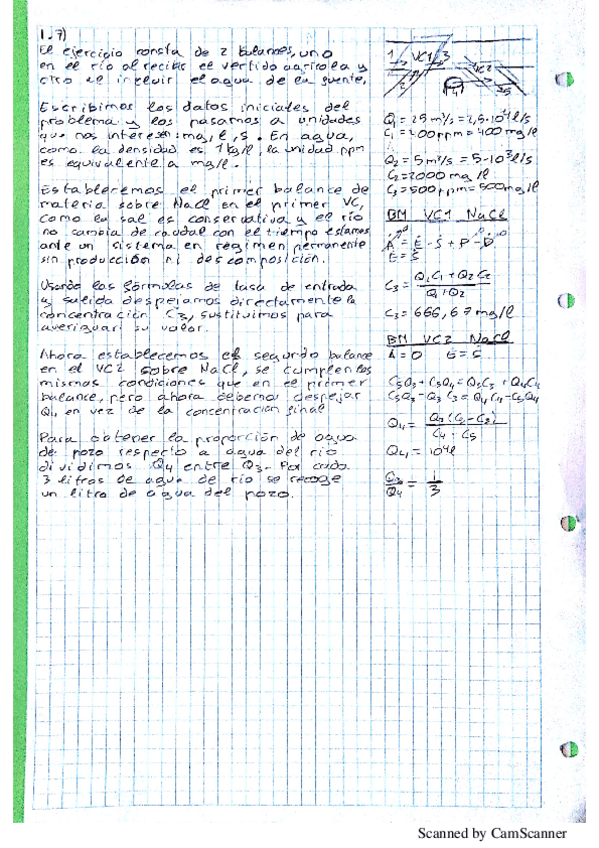 1.7)
El ejercicio consta de 2 balances, uno
en el río al recibir el vertido agrícola y
otro al incluir el agua de la fuente.
Escribimos los datos iniciales del
problema y los pasamos a unidades
que nos interesen: mg, l, s. En agua,
como la densidad es 1kg/l, la unidad ppm
es equivalente a mg/l.
Establecemos el primer balance de
materia sobre NaCl en el primer VC,
como la sal es conservativa y el río
no cambia de caudal con el tiempo estamos
ante un sistema en regimen permanente
sin producción ni descomposición.
Usando las fórmulas de tasa de entrada
y salida despejamos directamente la
concentración C3, sustituimos para
averiguar su valor.
Ahora establecemos el segundo balance
en el VC2 sobre NaCl, se cumplen las
mismas condiciones que en el primer
balance, pero ahora debemos despejar
Q4 en vez de la concentración final
Para obtener la proporción de agua
de pozo respecto a agua del río
dividimos Q4 entre Q3. Por cada
3 litros de agua de río se recoge
un litro de agua del pozo.
1 VC1 3
VC2
2
4
5
Q1 = 25 m³/s = 2,5·10⁴ l/s
C1 = 400ppm = 400 mg/l
Q2 = 5m³/s = 5·10³ l/s
C2 = 2000 mg/l
= 500ppm = 500mg/l
BM VC1 NaCl
Ȧ = Ė - Ṡ + Ṗ - Ḋ
Ė = Ṡ
C3 = Q1C1 + Q2C2 / Q1 + Q2
C3 = 666,67 mg/l
BM VC2 NaCl
Ȧ = 0 Ė = Ṡ
C5Q3 + C5Q4 = Q3C3 + Q4C4
C5Q3 - Q3C3 = Q4C4 - C5Q4
Q4 =
C4 - C5
Q4 = 10⁴ l
= 1/3
Scanned by CamScanner